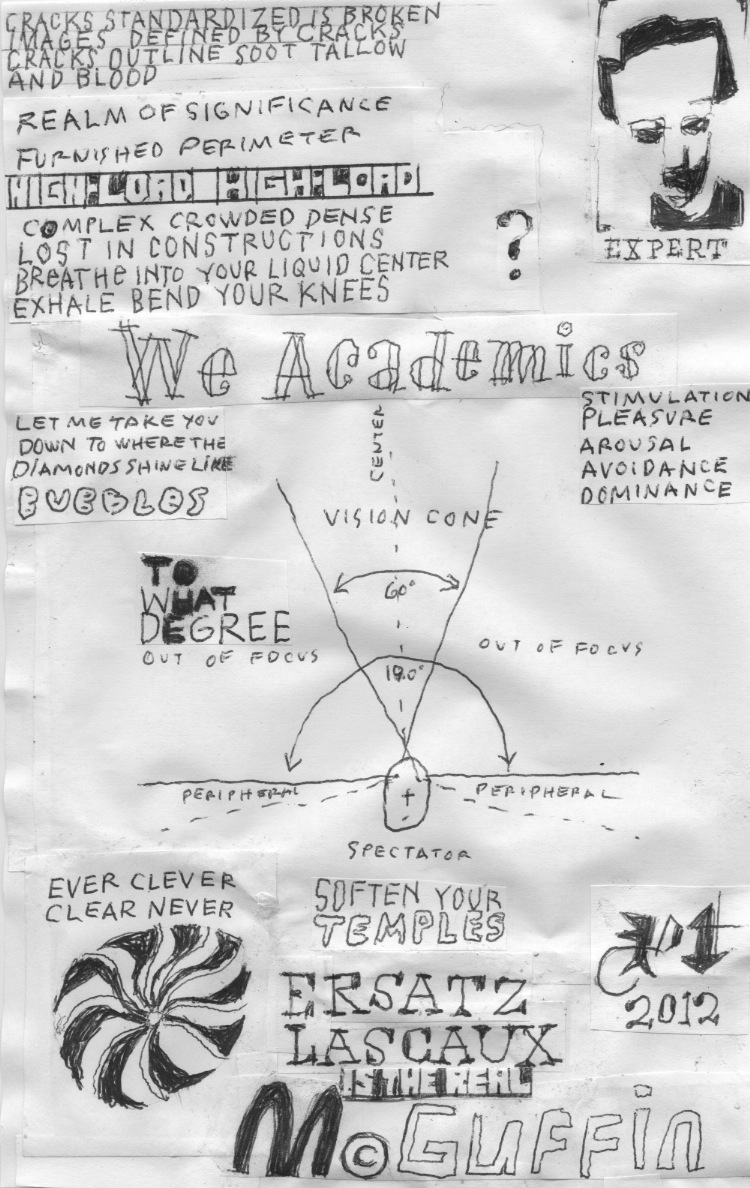 CRACKS STANDARDIZED IS BROKEN
IMAGES DEFINED BY CRACKS
CRACKS OUTLINE SOOT TALLOW
AND BLOOD
REALM OF SIGNIFICANCE
FURNISHED PERIMETER
HIGH:LOAD HIGH:LOAD
COMPLEX CROWDED DENSE
LOST IN CONSTRUCTIONS
BREATHE INTO YOUR LIQUID CENTER
EXHALE BEND YOUR KNEES
?
EXPERT
We Academics
LET ME TAKE YOU
DOWN TO WHERE THE
DIAMONDS SHINE LIKE
STIMULATION
PLEASURE
AROUSAL
AVOIDANCE
DOMINANCE
CENTER
VISION CONE
60°
TO
WHAT
DEGREE
OUT OF FOCUS
OUT OF FOCUS
180°
PERIPHERAL
PERIPHERAL
SPECTATOR
EVER CLEVER
CLEAR NEVER
SOFTEN YOUR
TEMPLES
2012
ERSATZ
LASCAUX
IS THE REAL
Mc©GUFFin